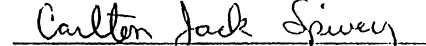 Carlton Jack Spivey